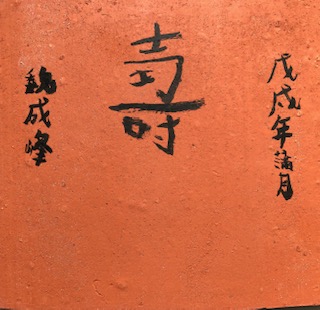 戊戌年蒲月
壽
魏成峰